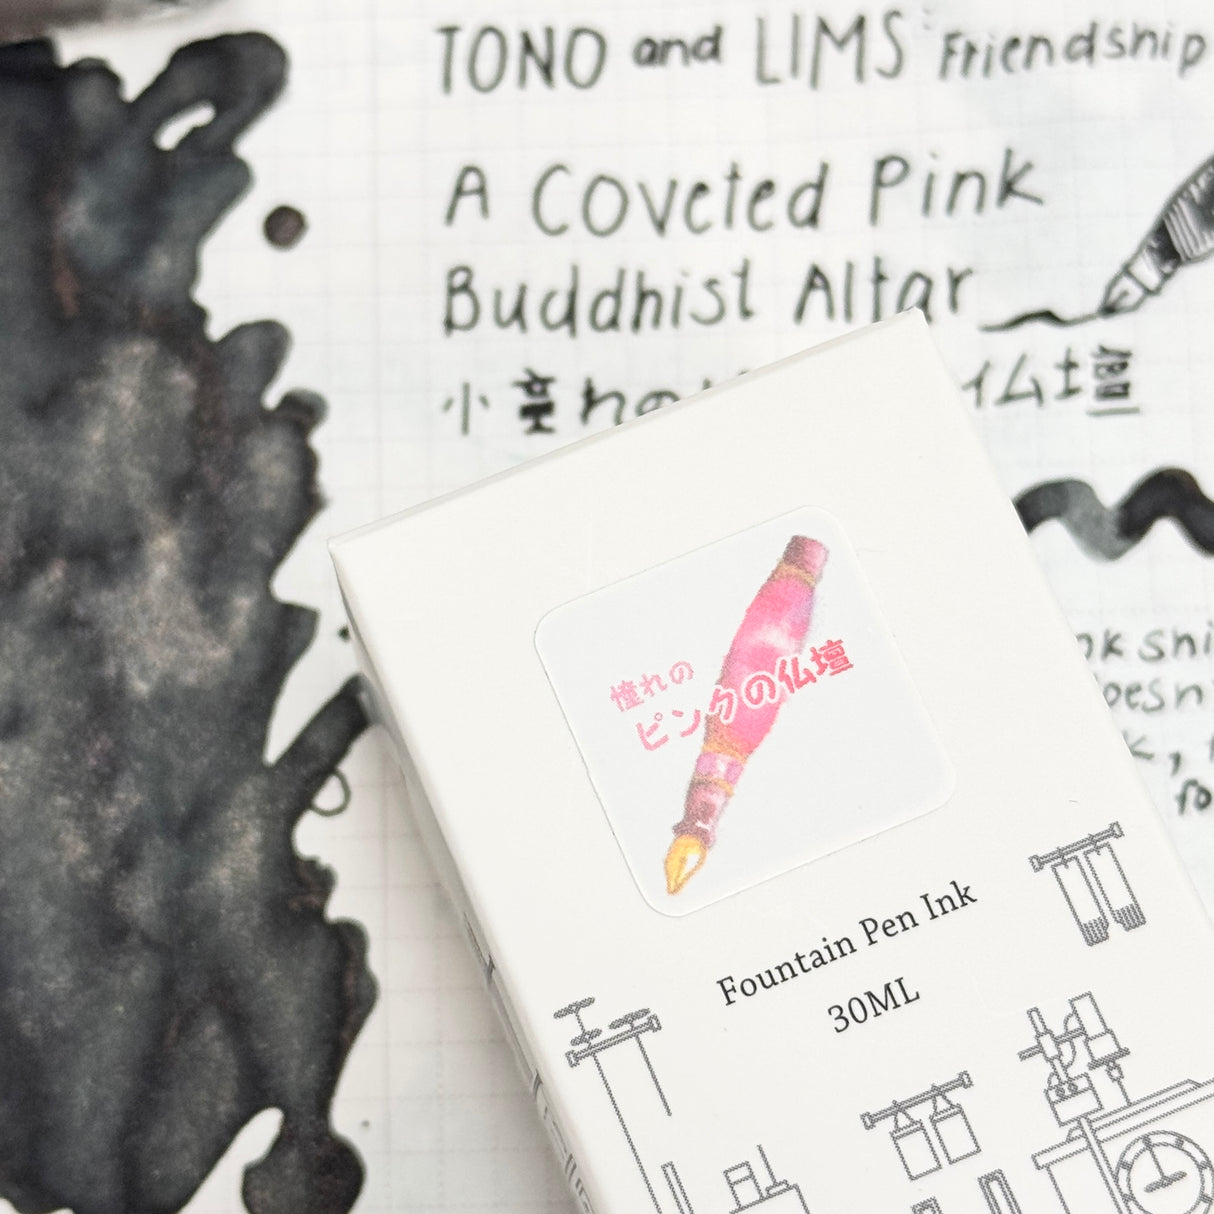 TONO and LIMS Friendship
A Coveted Pink
Buddhist Altar
小童れの 仏壇
憧れの
ピンクの仏壇
Fountain Pen Ink
30ML